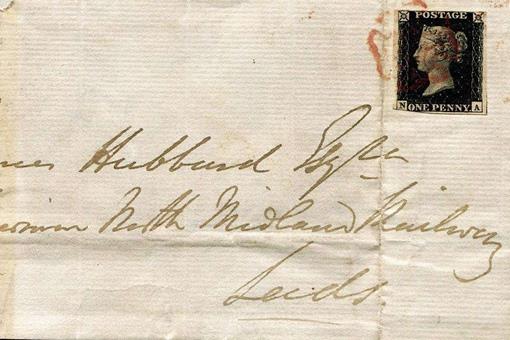 POSTAGE
N ONE PENNY A
Hubbard Esqre
North Midland Railway
Leeds